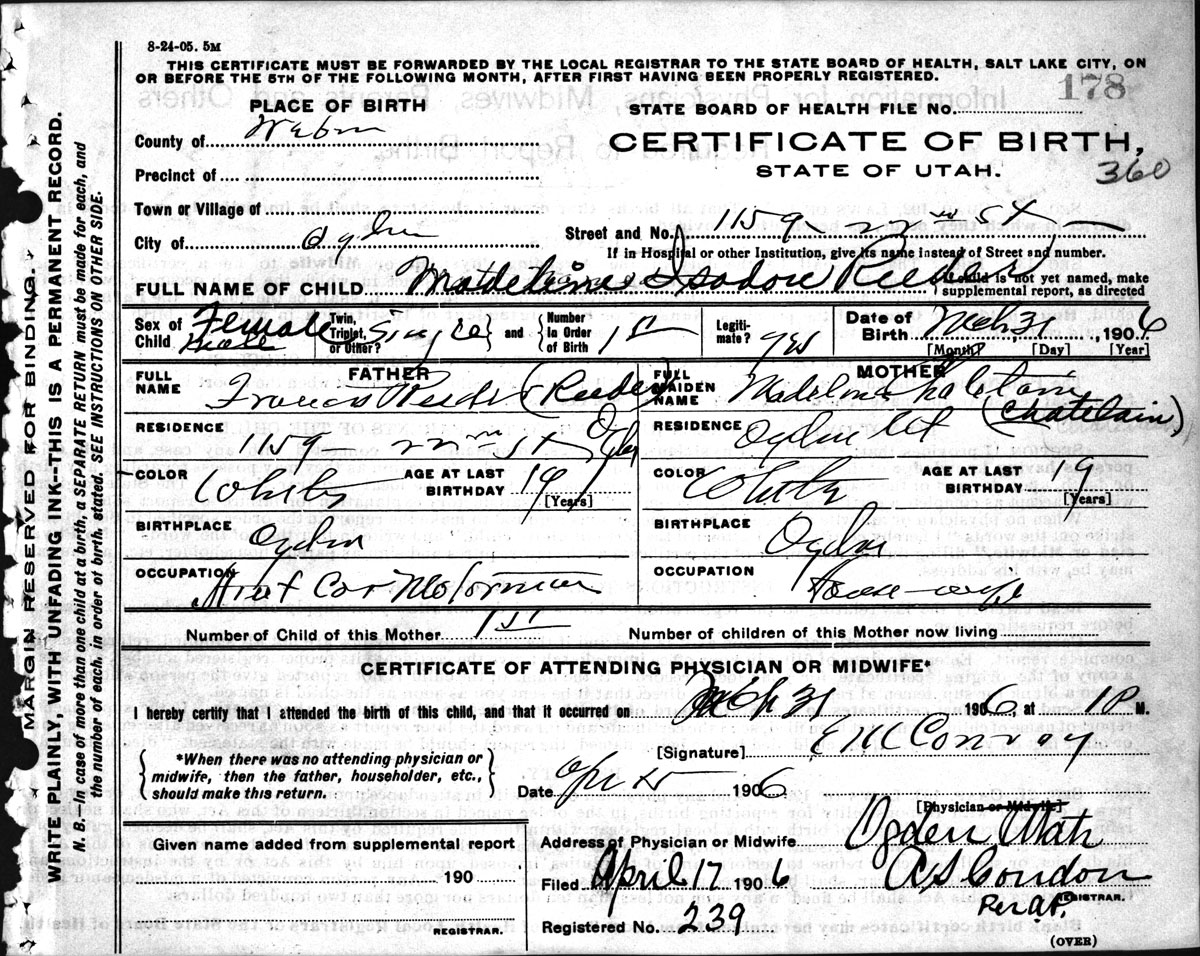 8-24-05. 5M
THIS CERTIFICATE MUST BE FORWARDED BY THE LOCAL REGISTRAR TO THE STATE BOARD OF HEALTH, SALT LAKE CITY, ON
OR BEFORE THE 5TH OF THE FOLLOWING MONTH, AFTER FIRST HAVING BEEN PROPERLY REGISTERED.
178
PLACE OF BIRTH
STATE BOARD OF HEALTH FILE No.
County of
CERTIFICATE OF BIRTH,
STATE OF UTAH.
360
Precinct of
Town or Village of
City of Ogden
Street and No. 1159 22nd St
If in Hospital or other Institution, give its name instead of Street and number.
FULL NAME OF CHILD Isadore Reeder
If child is not yet named, make
supplemental report, as directed
Sex of Child Female
Twin, Triplet, or Other? Single and Number In Order of Birth 1st
Legitimate? yes
Date of Birth Mch 31, 1906
[Month] [Day] [Year]
FATHER
FULL NAME Francis Reeder (Reeder
MOTHER
FULL MAIDEN NAME (Chatelain)
RESIDENCE 1159 22nd St Ogden
RESIDENCE Ogden Ut
COLOR White AGE AT LAST BIRTHDAY 19 [Years]
COLOR White AGE AT LAST BIRTHDAY 19 [Years]
BIRTHPLACE Ogden
BIRTHPLACE Ogden
OCCUPATION Street Car Motorman
OCCUPATION House-wife
Number of Child of this Mother 1st Number of children of this Mother now living
CERTIFICATE OF ATTENDING PHYSICIAN OR MIDWIFE*
I hereby certify that I attended the birth of this child, and that it occurred on Mch 31 1906, at M.
[Signature]
*When there was no attending physician or
midwife, then the father, householder, etc.,
should make this return.
Date Apr 15 1906
[Physician or Midwife]
Given name added from supplemental report
190
REGISTRAR.
Address of Physician or Midwife Ogden Utah
Filed April 17 1906 A S Condon
Per
REGISTRAR.
Registered No. 239
(OVER)
MARGIN RESERVED FOR BINDING.
WRITE PLAINLY, WITH UNFADING INK--THIS IS A PERMANENT RECORD.
N. B.--In case of more than one child at a birth, a SEPARATE RETURN must be made for each, and
the number of each, in order of birth, stated. SEE INSTRUCTIONS ON OTHER SIDE.